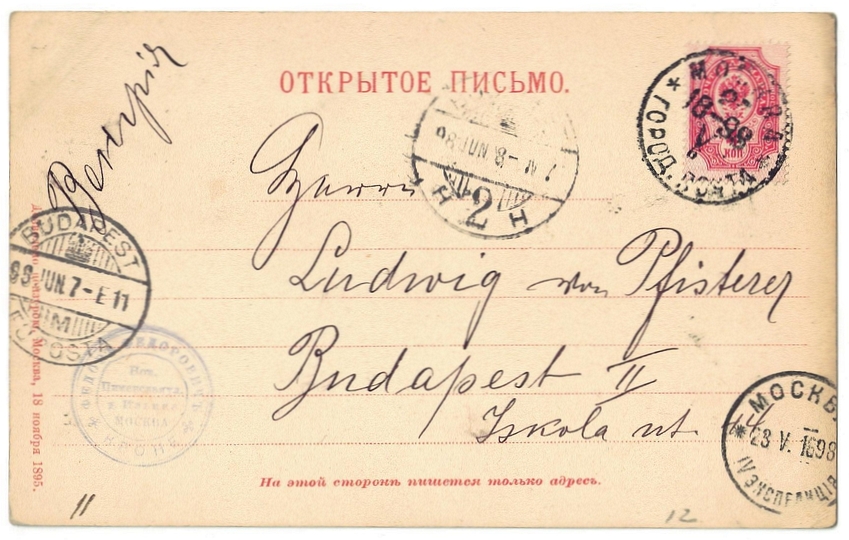 Венгрiя
ОТКРЫТОЕ ПИСЬМО.
МОСКВА
ГОРОД. ПОЧТА
98 JUN 8
2
Herrn
Ludwig von Pfisterer
BUDAPEST
98 JUN. 7 - E 11
Budapest II
Iskola ut 44
ѲЕДОРОВИЧЪ
МОСКВА
КРОНЕ
МОСКВА
23 V. 1898
IV ЭКСПЕДИЦIЯ
Москва, 18 ноября 1895.
На этой сторонѣ пишется только адресъ.
11
12